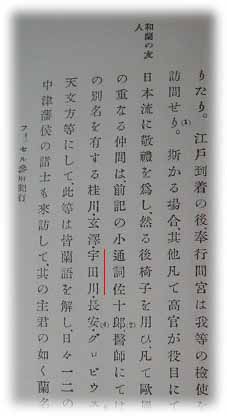 りたり。江戸到着の後奉行間宮は我等の檢使な
訪問せり。(1)斯かる場合、其他凡て高官が役目にて
日本流に敬禮を爲し、然る後椅子を用ひ、凡て歐
の重なる仲間は前記の小通詞佐十郎(2)醫師にては
の別名を有する桂川・玄澤・宇田川・長安(4)・グロビウス
天文方等にして、此等は皆蘭語を解し、日々一二の
中津藩侯の諸士も來訪して、其の主君の如く蘭名
和蘭の友人
フィッセル參府紀行